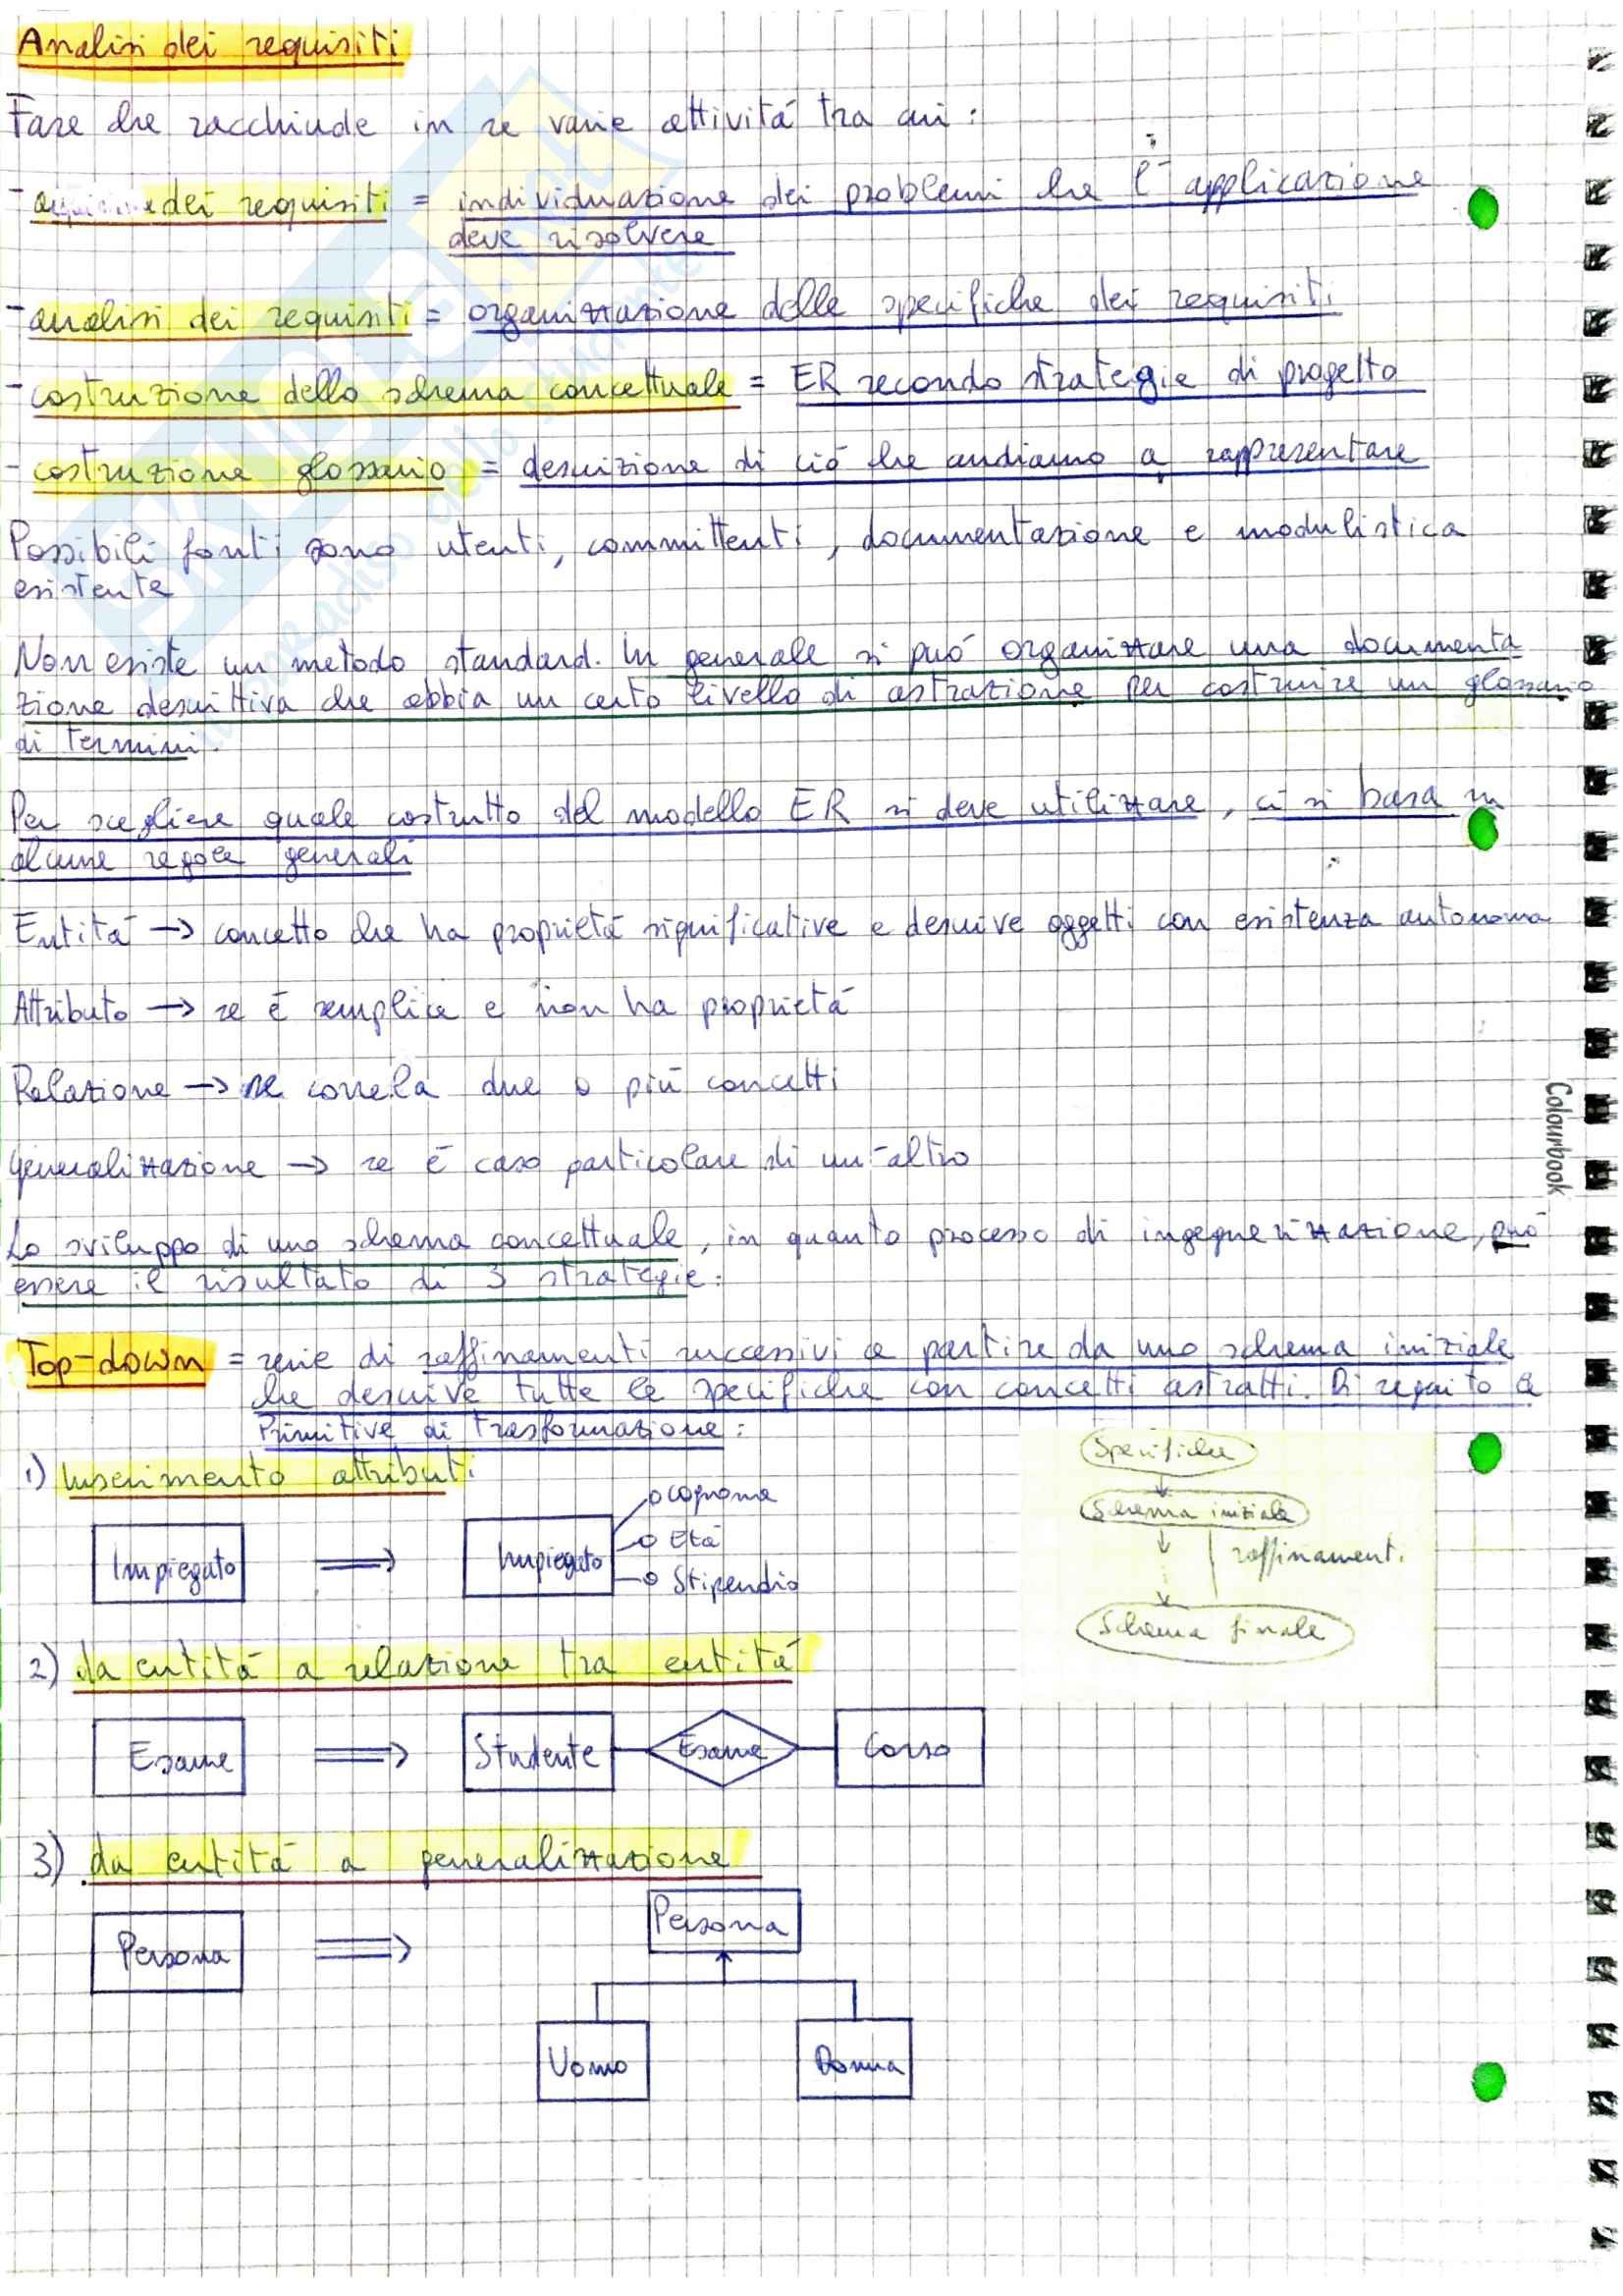 Analisi dei requisiti
Fase che racchiude in se varie attivitá tra cui:
- dei requisiti = individuazione dei problemi che l'applicazione
deve risolvere
- analisi dei requisiti = organizzazione delle specifiche dei requisiti
- costruzione dello schema concettuale = ER secondo strategie di progetto
- costruzione glossario = descrizione di ció che andiamo a rappresentare
Possibili fonti sono utenti, committenti, documentazione e modulistica
esistente
Non esiste un metodo standard. In generale si puó organizzare una documenta
zione descrittiva che abbia un certo livello di astrazione per costruire un glossario
di termini.
Per scegliere quale costrutto del modello ER si deve utilizzare, ci si basa su
alcune regole generali
Entitá → concetto che ha proprietá significative e descrive oggetti con esistenza autonoma
Attributo → se é semplice e non ha proprietá
Relazione → se correla due o piú concetti
Generalizzazione → se é caso particolare di un'altro
Lo sviluppo di uno schema concettuale, in quanto processo di ingegnerizzazione, puó
essere il risultato di 3 strategie:
Top-down = serie di raffinamenti successivi a partire da uno schema iniziale
che descrive tutte le specifiche con concetti astratti. Di seguito le
Primitive di trasformazione:
1) Inserimento attributi
Impiegato ⟹ Impiegato
cognome
Etá
Stipendio
Specifiche
Schema iniziale
raffinamenti
Schema finale
2) da entitá a relazione tra entitá
Esame ⟹ Studente Esame Corso
3) da entitá a generalizzazione
Persona ⟹ Persona
Uomo Donna
Colourbook
SKUOLA.net
il paradiso dello studente